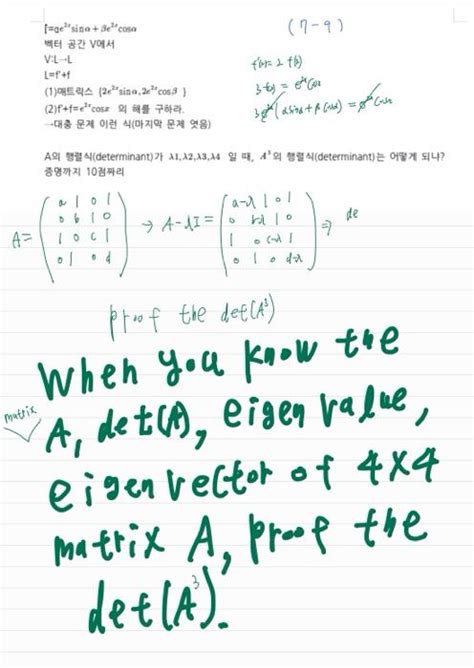 f=αe²ˣsinα+βe²ˣcosα
(7-9)
벡터 공간 V에서
V:L→L
L=f'+f
(1)매트릭스 {2e²ˣsinα,2e²ˣcosβ }
(2)f'+f=e²ˣcosx 의 해를 구하라.
→대충 문제 이런 식(마지막 문제 엿음)
A의 행렬식(determinant)가 λ1,λ2,λ3,λ4 일 때, A³의 행렬식(determinant)는 어떻게 되나?
증명까지 10점짜리
A= ( a 1 0 1 / 0 b 1 0 / 1 0 c 1 / 0 1 0 d ) → A-λI = ( a-λ 1 0 1 / 0 b-λ 1 0 / 1 0 c-λ 1 / 0 1 0 d-λ ) ⇒ de
proof the det(A³)
When you know the
matrix
A, det(A), eigen value,
eigen vector of 4x4
matrix A, proof the
det(A³).